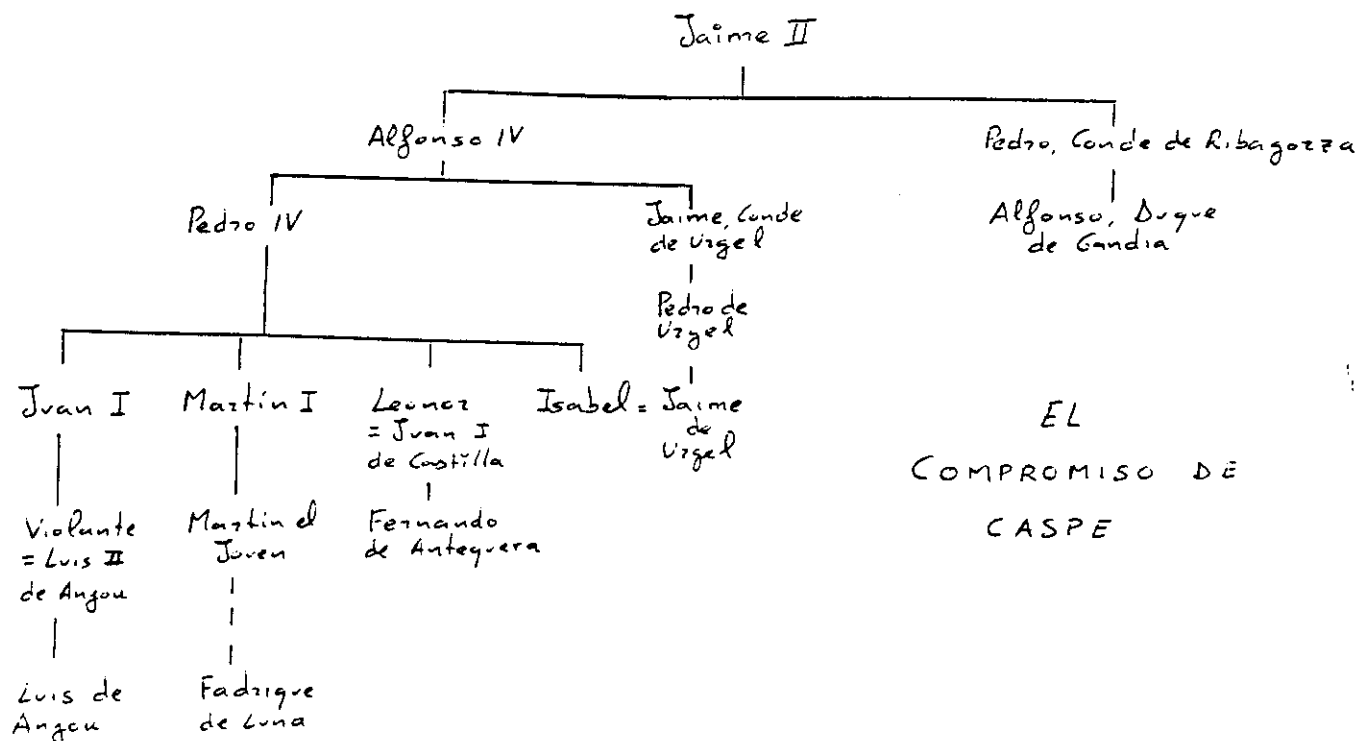 Jaime II
Alfonso IV
Pedro, Conde de Ribagorza
Pedro IV
Jaime, Conde
de Urgel
Alfonso, Duque
de Gandia
Pedro de
Urgel
Juan I
Martín I
Leonor
= Juan I
de Castilla
Isabel = Jaime
de
Urgel
EL
COMPROMISO DE
CASPE
Violante
= Luis II
de Anjou
Martin el
Joven
Fernando
de Antequera
Luis de
Anjou
Fadrique
de Luna